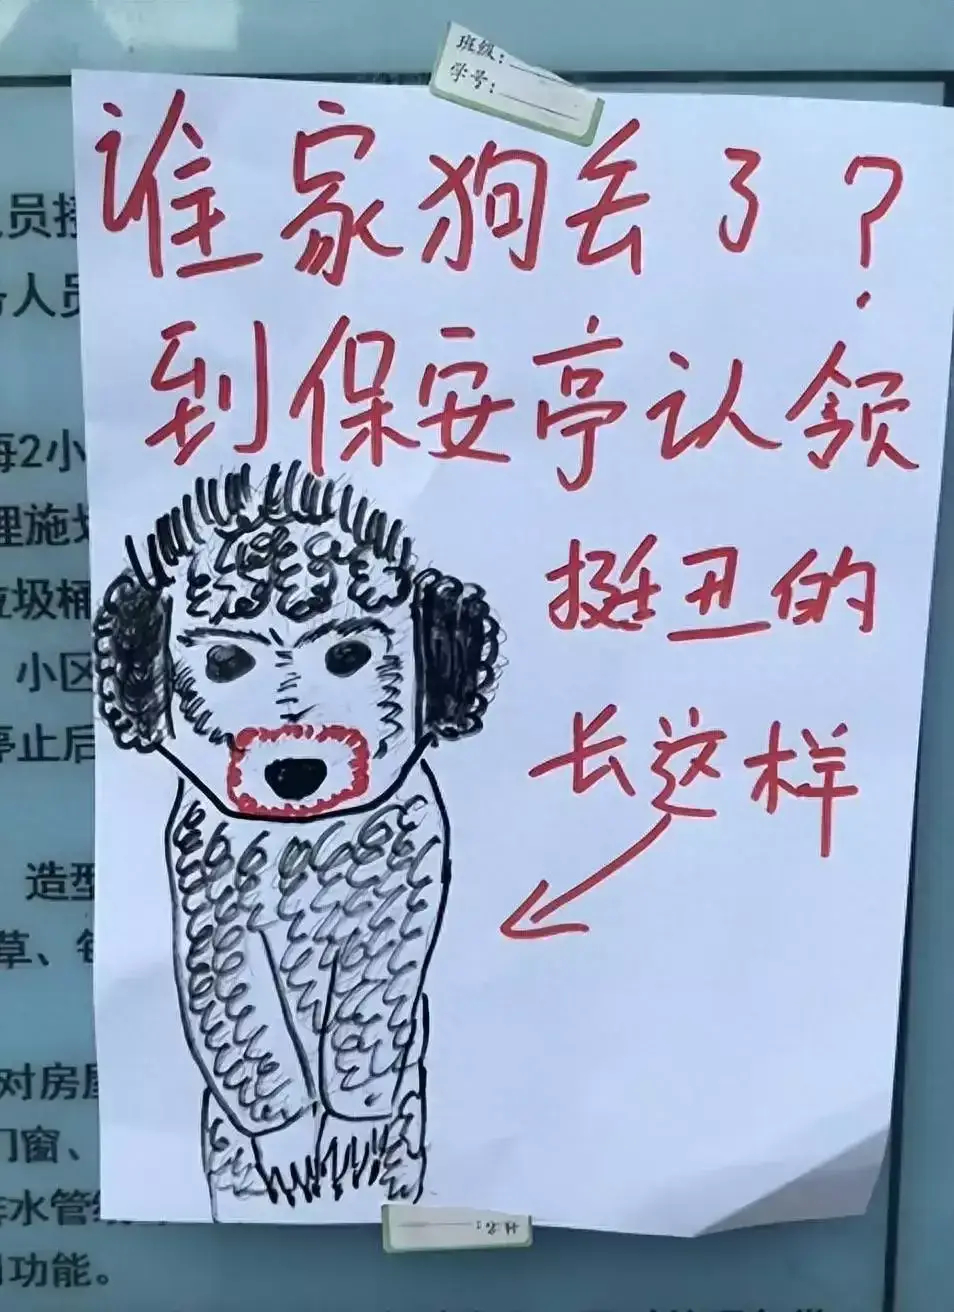 班级:
学号:
谁家狗丢了?
到保安亭认领
挺丑的
长这样
员接
人员
每2小
理施划
垃圾桶
小区
停止后
造型
草、
对房屋
门窗、
水管
功能。